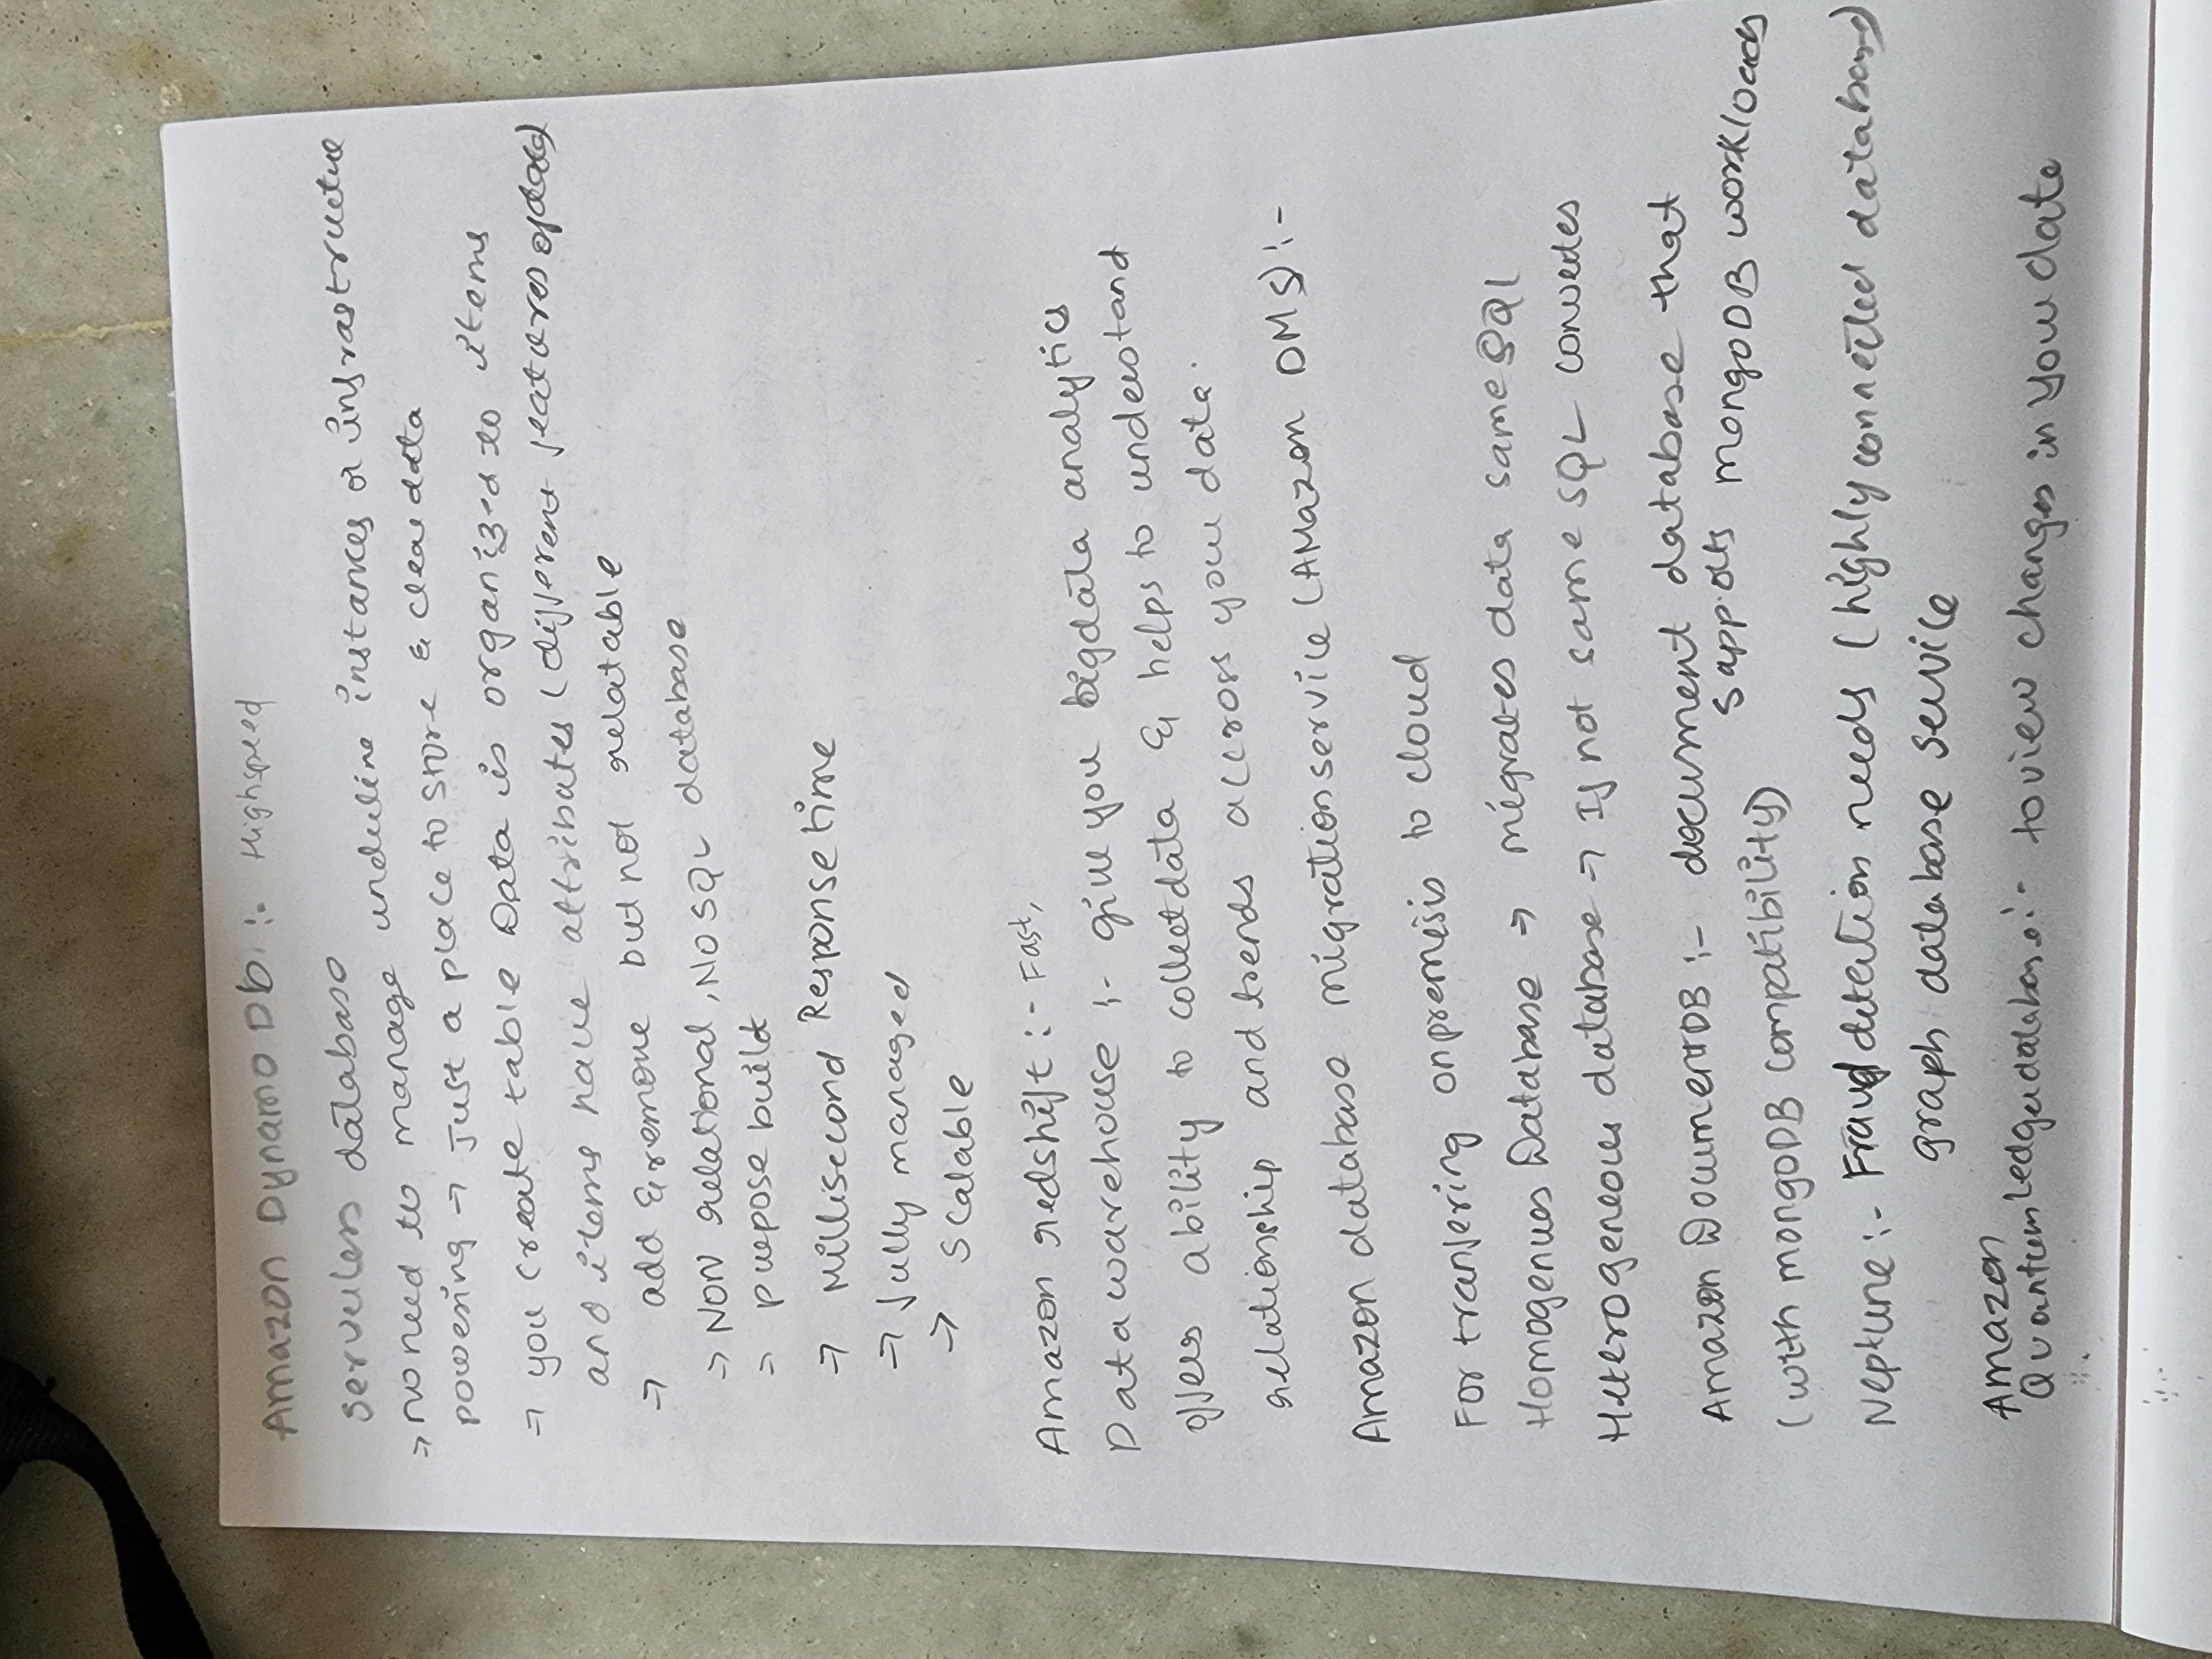 Amazon Dynamo Db :- Highspeed
serverless database
→ no need to manage underline instances or infrastructure
powering → Just a place to store & clear data
→ you create table Data is organized to items
and items have attributes (different features of data)
→ add & remove but not relatable
→ NON relational, NO SQL database
→ purpose build
→ Millisecond Response time
→ fully managed
→ Scalable
Amazon redshift :- Fast,
Data warehouse :- give you bigdata analytics
offers ability to collect data & helps to understand
relationship and trends accross your data.
Amazon database migration service (AMazon DMS) :-
For tranfering onpremisis to cloud
Homogenues Database → migrates data same SQl
Heterogeneous database → If not same SQL convertes
Amazon DocumentDB :- document database that
supports mongoDB workloads
(with mongoDB compatibility)
Neptune :- Fraud detection needs (highly connected database)
graph database service
Amazon
Quantum Ledger database :- to view changes in your data